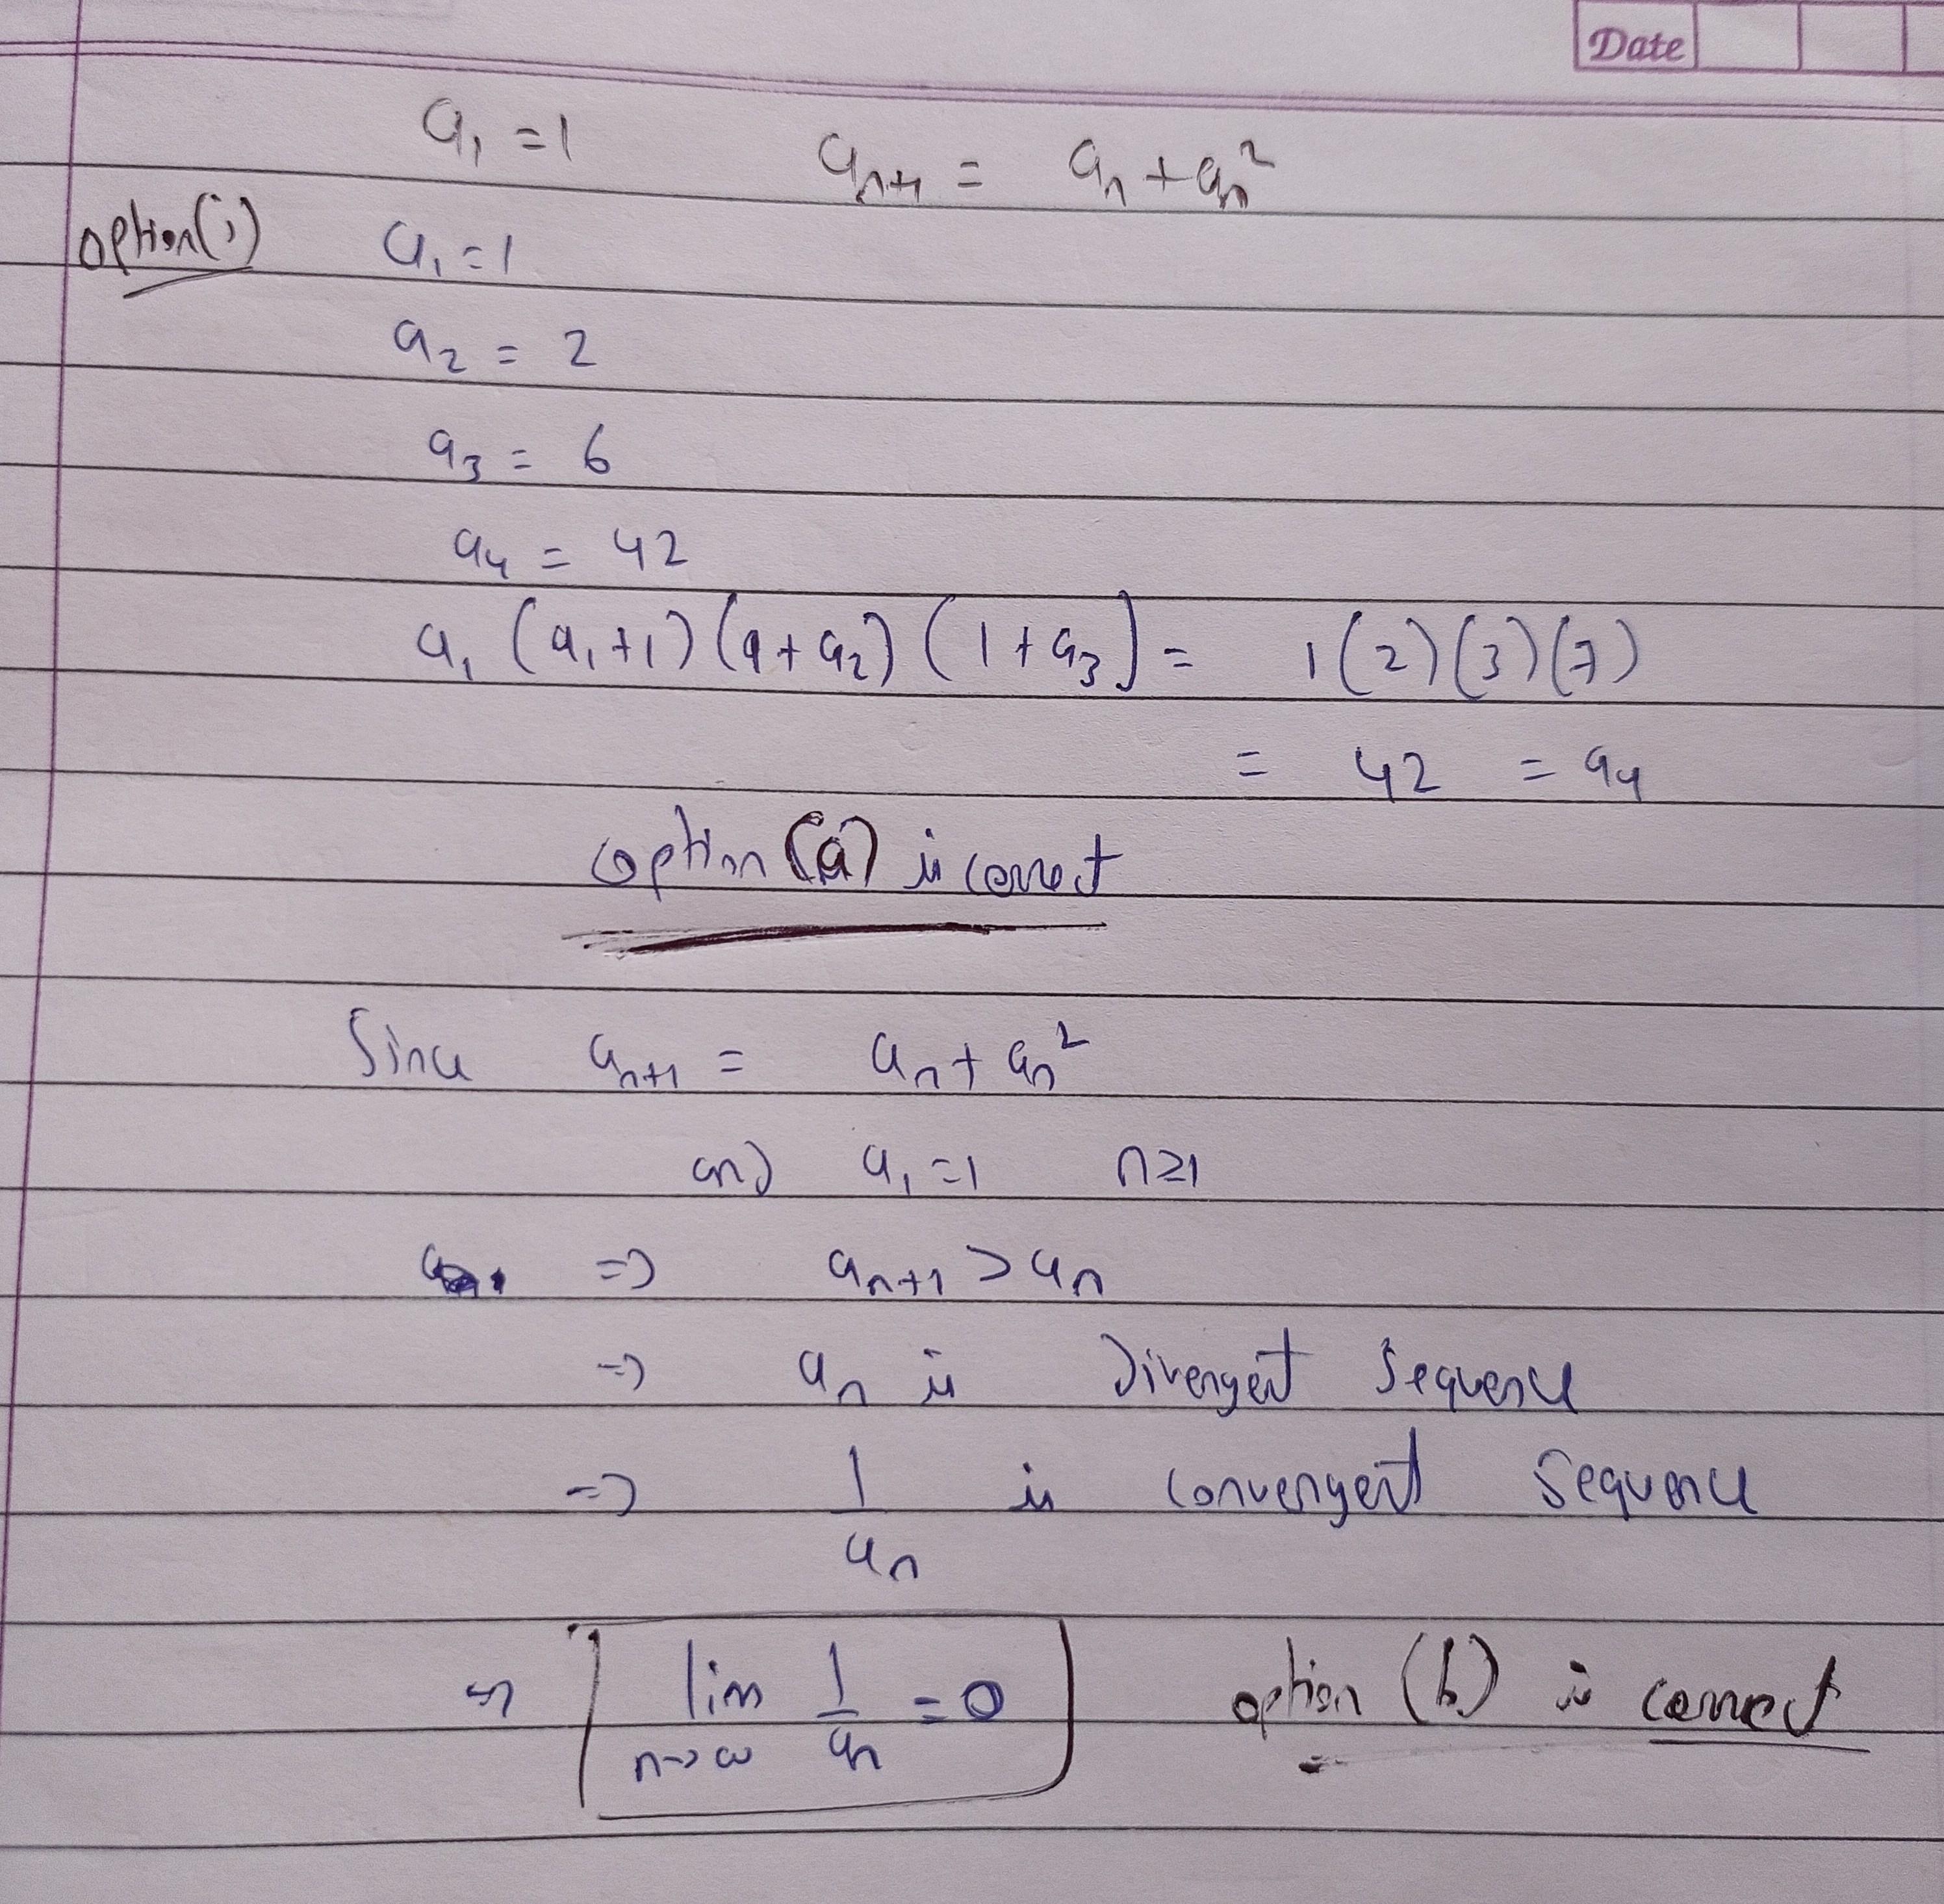 Date
a₁ = 1 aₙ₊₁ = aₙ + aₙ²
option(i) a₁ = 1
a₂ = 2
a₃ = 6
a₄ = 42
a₁ (a₁+1) (1+a₂) (1+a₃) = 1(2)(3)(7)
= 42 = a₄
option (a) is correct
Since aₙ₊₁ = aₙ + aₙ²
and a₁ = 1 n≥1
⇒ aₙ₊₁ > aₙ
⇒ aₙ is Divergent Sequence
⇒ 1/aₙ is convergent Sequence
⇒ lim n→∞ 1/aₙ = 0 option (b) is correct